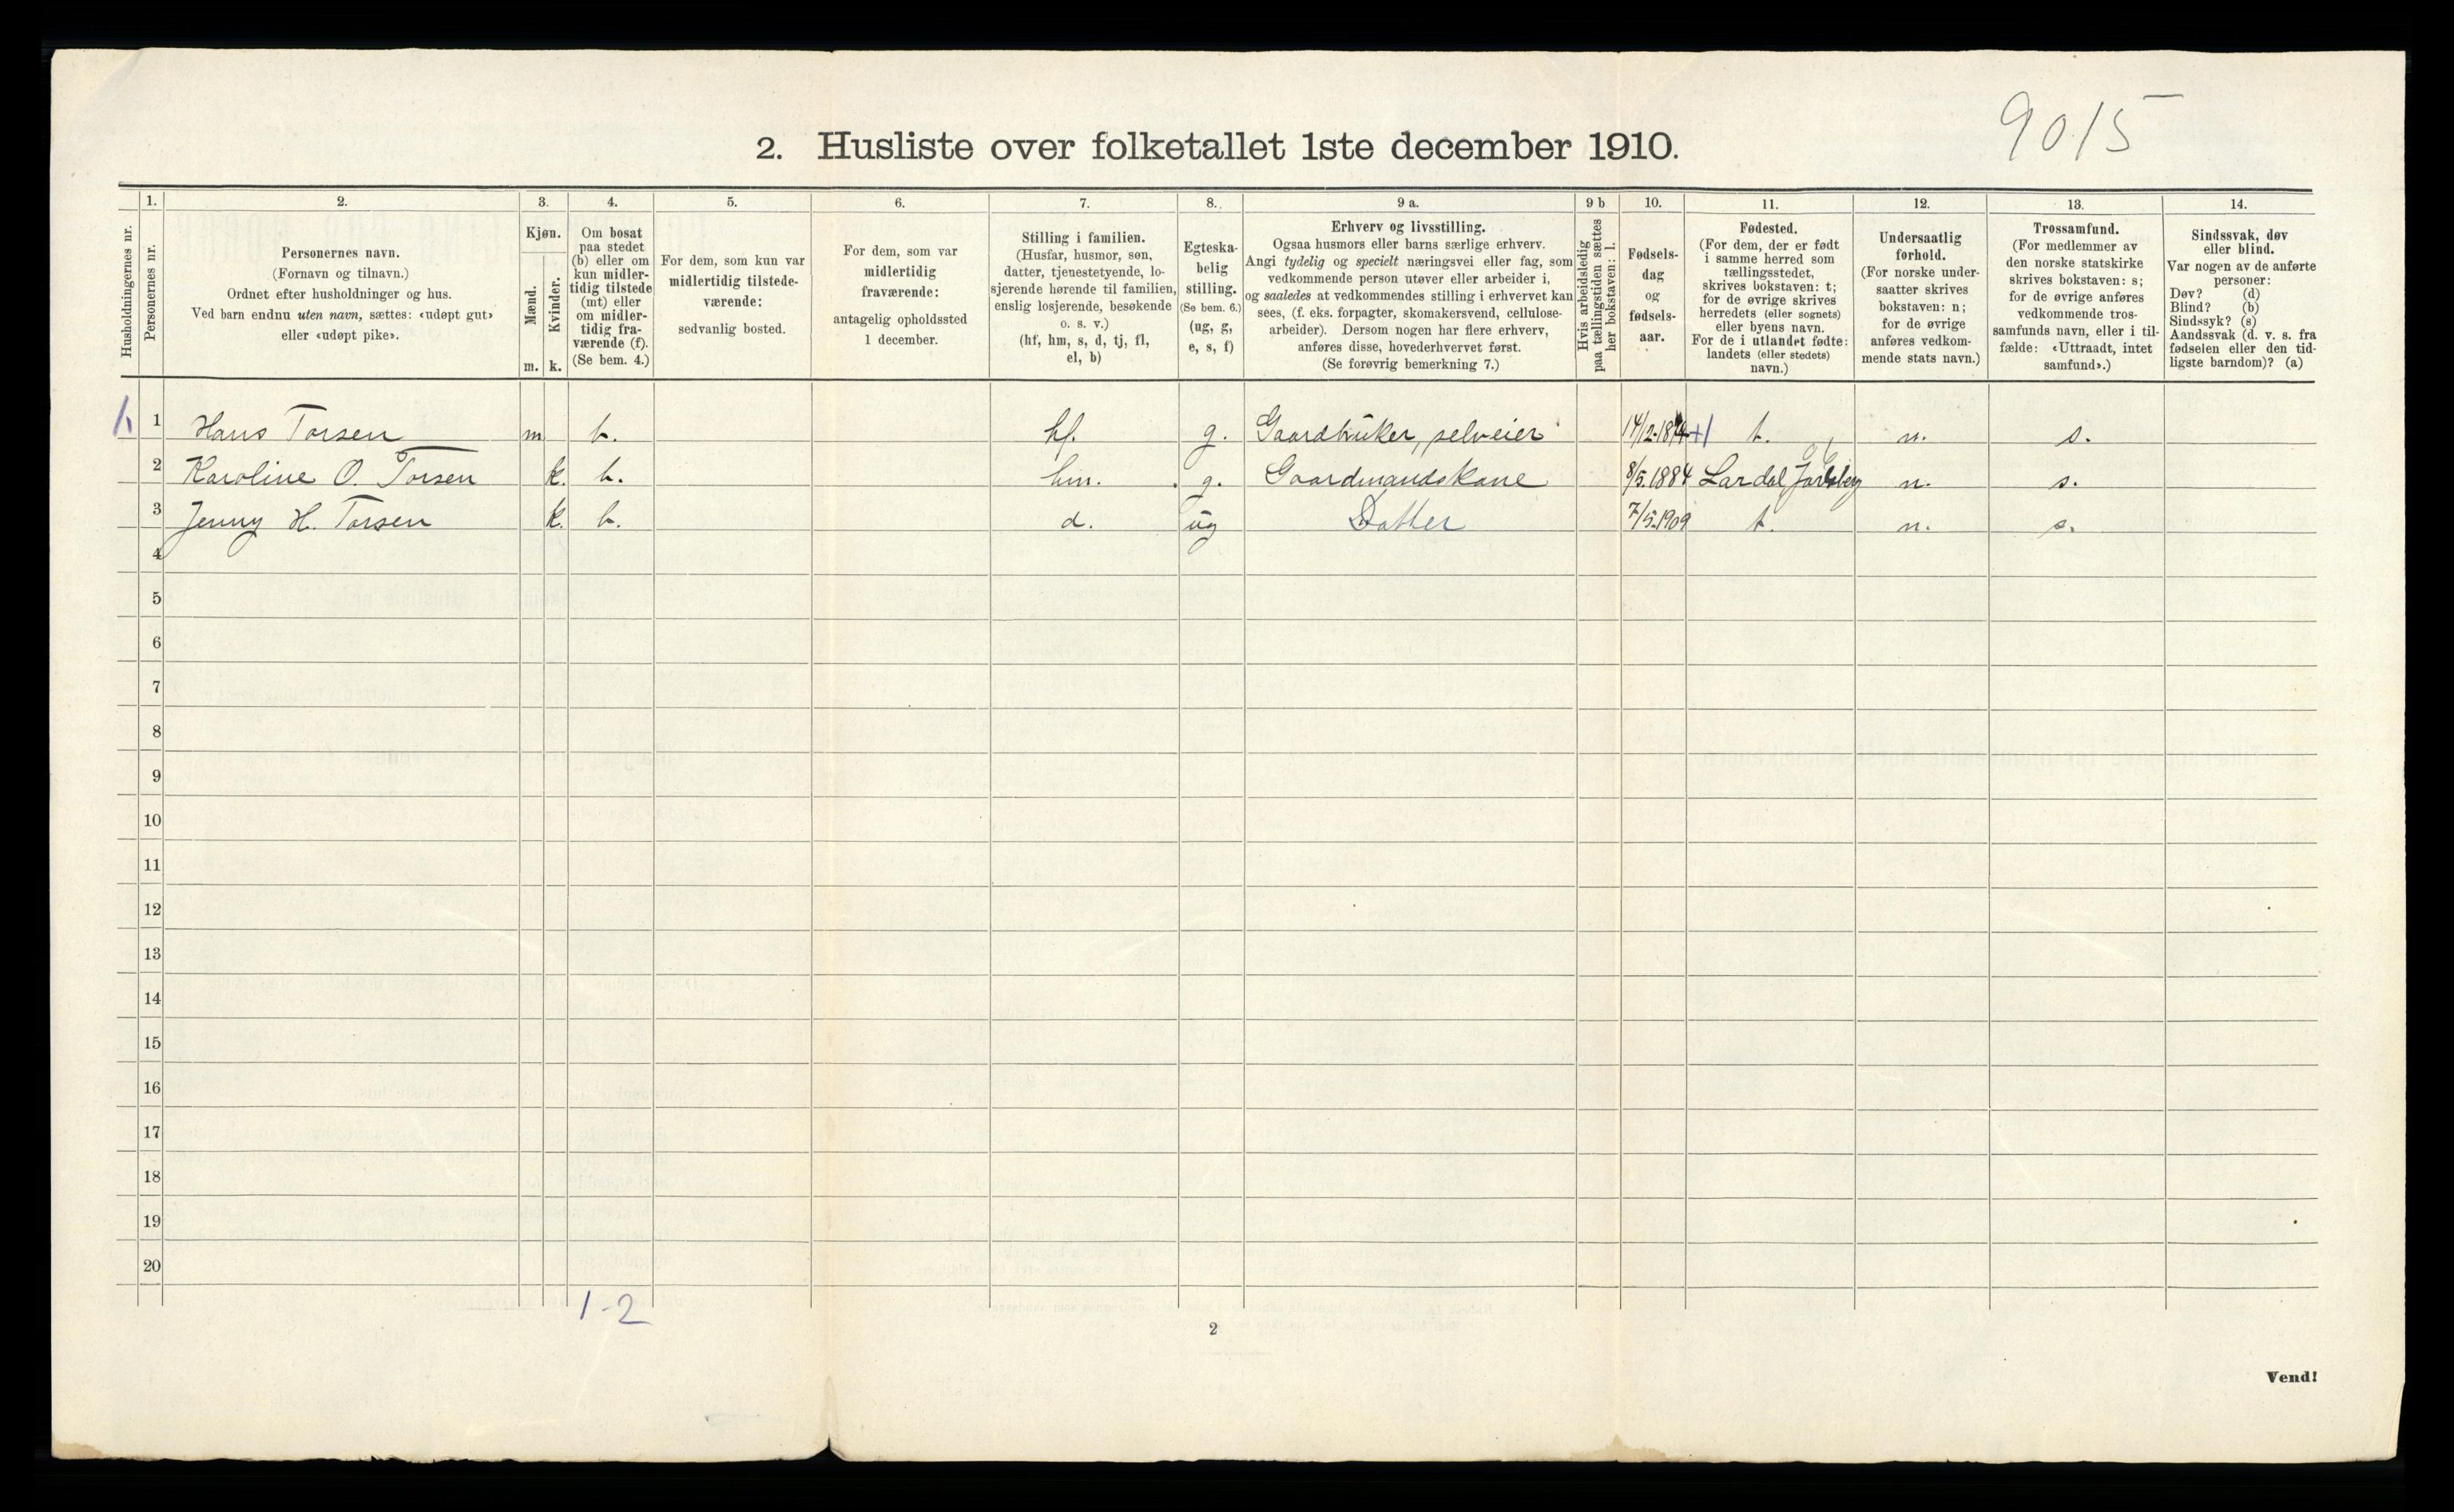 9015
2. Husliste over folketallet 1ste december 1910.
Husholdningernes nr.
1.
Personernes nr.
2.
Personernes navn.
(Fornavn og tilnavn.)
Ordnet efter husholdninger og hus.
Ved barn endnu uten navn, sættes: «udøpt gut»
eller «udøpt pike».
3.
Kjøn.
Mænd.
Kvinder.
m. k.
4.
Om bosat
paa stedet
(b) eller om
kun midler-
tidig tilstede
(mt) eller
om midler-
tidig fra-
værende (f).
(Se bem. 4.)
5.
For dem, som kun var
midlertidig tilstede-
værende:
sedvanlig bosted.
6.
For dem, som var
midlertidig
fraværende:
antagelig opholdssted
1 december.
7.
Stilling i familien.
(Husfar, husmor, søn,
datter, tjenestetyende, lo-
sjerende hørende til familien,
enslig losjerende, besøkende
o. s. v.)
(hf, hm, s, d, tj, fl,
el, b)
8.
Egteska-
belig
stilling.
(Se bem. 6.)
(ug, g,
e, s, f)
9 a.
Erhverv og livsstilling.
Ogsaa husmors eller barns særlige erhverv.
Angi tydelig og specielt næringsvei eller fag, som
vedkommende person utøver eller arbeider i,
og saaledes at vedkommendes stilling i erhvervet kan
sees, (f. eks. forpagter, skomakersvend, cellulose-
arbeider). Dersom nogen har flere erhverv,
anføres disse, hovederhvervet først.
(Se forøvrig bemerkning 7.)
9 b
Hvis arbeidsledig
paa tællingstiden sættes
her bokstaven: l.
10.
Fødsels-
dag
og
fødsels-
aar.
11.
Fødested.
(For dem, der er født
i samme herred som
tællingsstedet,
skrives bokstaven: t;
for de øvrige skrives
herredets (eller sognets)
eller byens navn.
For de i utlandet fødte:
landets (eller stedets)
navn.)
12.
Undersaatlig
forhold.
(For norske under-
saatter skrives
bokstaven: n;
for de øvrige
anføres vedkom-
mende stats navn.)
13.
Trossamfund.
(For medlemmer av
den norske statskirke
skrives bokstaven: s;
for de øvrige anføres
vedkommende tros-
samfunds navn, eller i til-
fælde: «Uttraadt, intet
samfund».)
14.
Sindssvak, døv
eller blind.
Var nogen av de anførte
personer:
Døv? (d)
Blind? (b)
Sindssyk? (s)
Aandssvak (d. v. s. fra
fødselen eller den tid-
ligste barndom)? (a)
1 Hans Torsen m b. hf. g. Gaardbruker, selveier t. n. s.
2 Karoline O. Torsen k. b. hm. g. Gaardmandskone 8/5.1884 Lardal Jarlsberg n. s.
3 Jenny H. Torsen k. b. d. ug Datter 7/5.1909 t. n. s.
4
5
6
7
8
9
10
11
12
13
14
15
16
17
18
19
20
1-2
2
Vend!